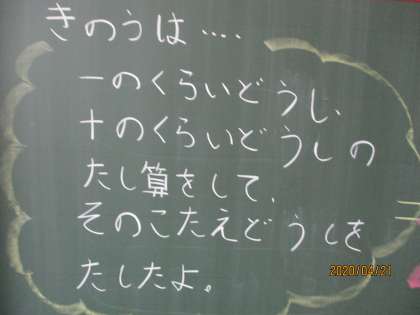 きのうは‥‥
一のくらいどうし、
十のくらいどうしの
たし算をして、
そのこたえどうしを
たしたよ。
2020/04/21